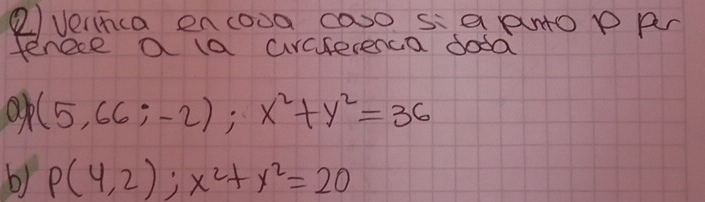 2) Verifica en cada caso si el punto p per
tenece a la circferencia dada
a) p(5,66;-2); x²+y²=36
b) p(4,2); x²+y²=20